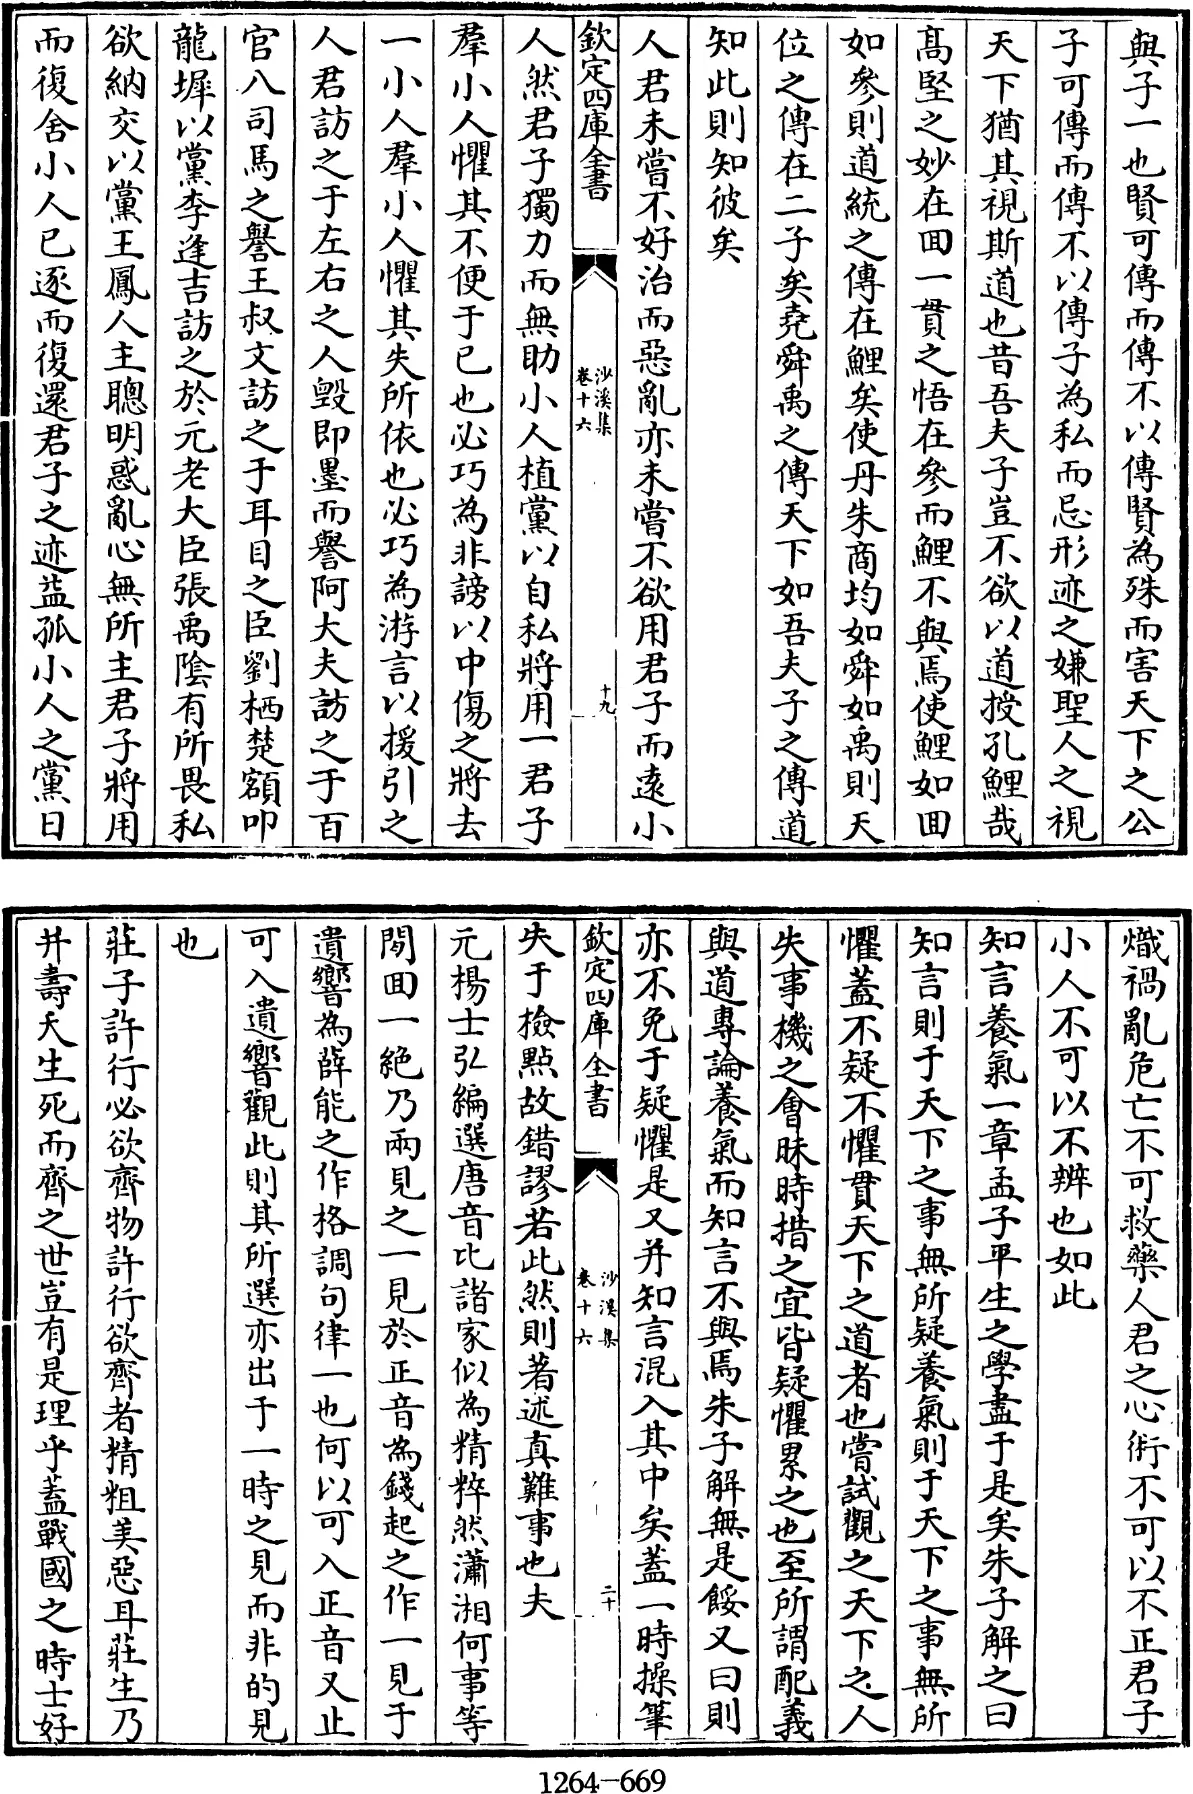 與子一也賢可傳而傳不以傳賢為殊而害天下之公
子可傳而傳不以傳子為私而忌形迹之嫌聖人之視
天下猶其視斯道也昔吾夫子豈不欲以道授孔鯉哉
髙堅之妙在回一貫之悟在參而鯉不與焉使鯉如回
如參則道統之傳在鯉矣使丹朱商均如舜如禹則天
位之傳在二子矣堯舜禹之傳天下如吾夫子之傳道
知此則知彼矣
人君未嘗不好治而惡亂亦未嘗不欲用君子而逺小
欽定四庫全書
沙溪集
卷十六
十九
人然君子獨力而無助小人植黨以自私將用一君子
羣小人懼其不便于已也必巧為非謗以中傷之將去
一小人羣小人懼其失所依也必巧為游言以援引之
人君訪之于左右之人毀即墨而譽阿大夫訪之于百
官八司馬之譽王叔文訪之于耳目之臣劉栖楚額叩
龍墀以黨李逢吉訪之於元老大臣張禹陰有所畏私
欲納交以黨王鳳人主聰明惑亂心無所主君子將用
而復舍小人已逐而復還君子之迹益孤小人之黨日
熾禍亂危亡不可救藥人君之心術不可以不正君子
小人不可以不辨也如此
知言養氣一章孟子平生之學盡于是矣朱子解之曰
知言則于天下之事無所疑養氣則于天下之事無所
懼蓋不疑不懼貫天下之道者也嘗試觀之天下之人
失事機之會昧時措之宜皆疑懼累之也至所謂配義
與道專論養氣而知言不與焉朱子解無是餒又曰則
亦不免于疑懼是又并知言混入其中矣蓋一時操筆
欽定四庫全書
沙溪集
卷十六
二十
失于撿㸃故錯謬若此然則著述真難事也夫
元楊士弘編選唐音比諸家似為精粹然瀟湘何事等
閒回一絶乃兩見之一見於正音為錢起之作一見于
遺響為薛能之作格調句律一也何以可入正音又止
可入遺響觀此則其所選亦出于一時之見而非的見
也
莊子許行必欲齊物許行欲齊者精粗美惡耳莊生乃
并壽夭生死而齊之世豈有是理乎蓋戰國之時士好
1264-669